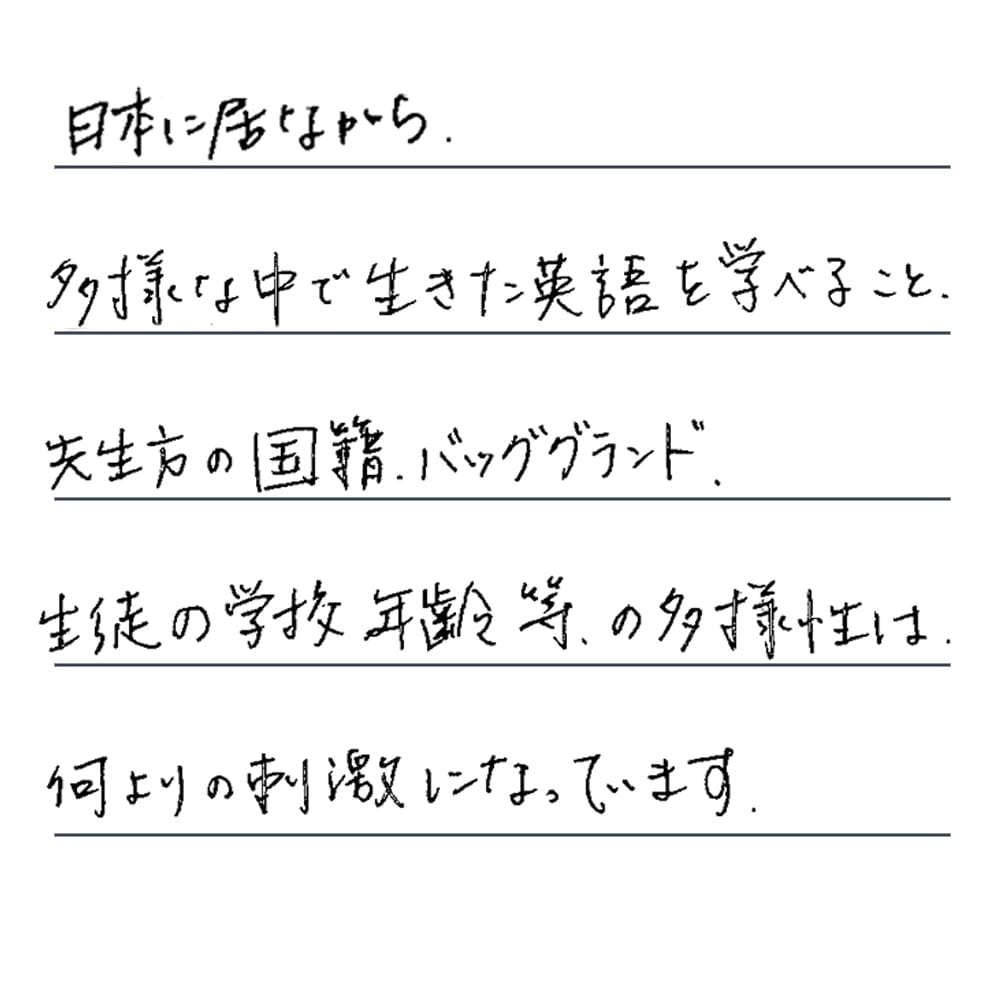 日本に居ながら.
多様な中で生きた英語を学べること.
先生方の国籍.バッググランド.
生徒の学校年齢等.の多様性は.
何よりの刺激になっています.